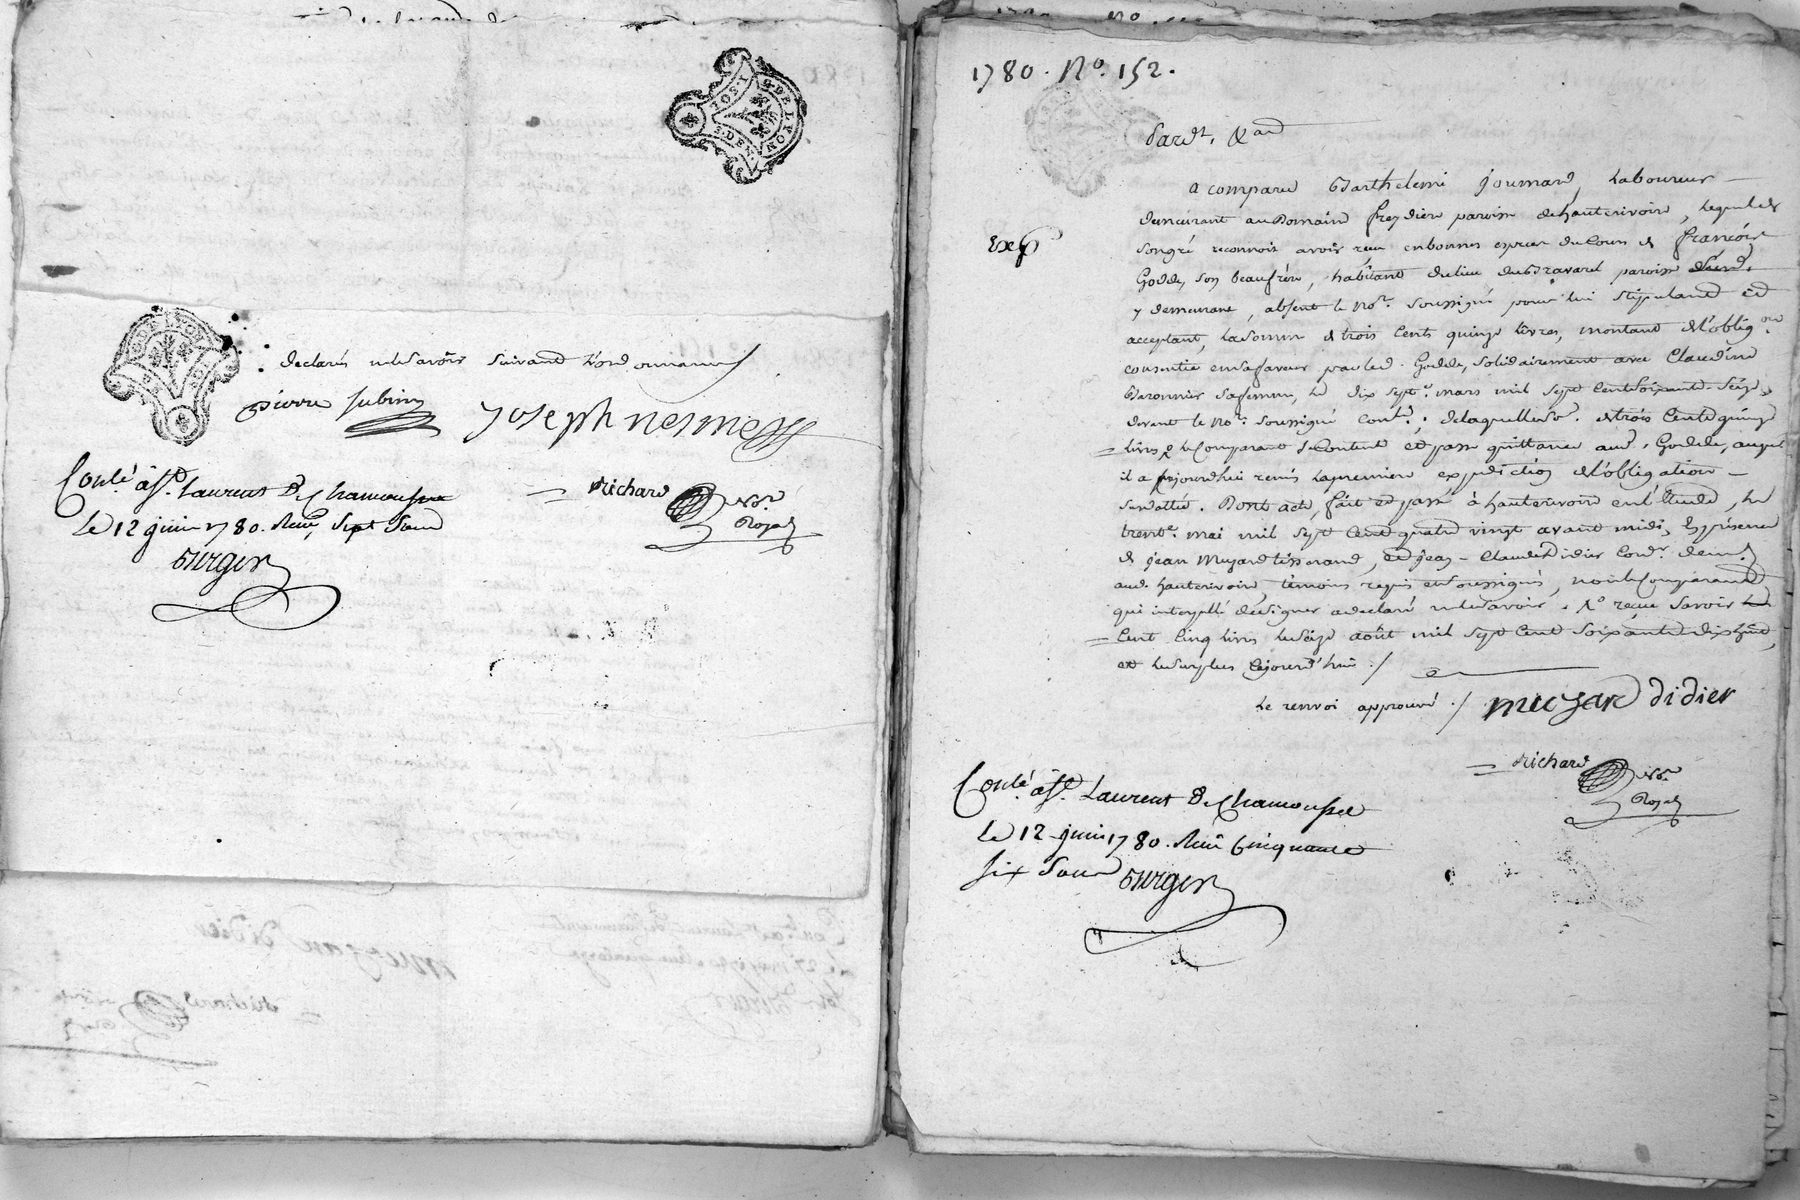 declarés ne le savoir suivant l'ordonnance /
pierre subrin
Joseph nesme
Conlé. à St. Laurent De Chamousset
Le 12 juin 1780. Reçu Sept Sous
Surger
Richard No.re
Royal
1780. No. 152.
Pardt. &ard
a comparu Barthelemi Joumard, Laboureur
demeurant au Domaine freydiere paroisse de hauterivoire, lequel de
Exp
son gré reconnoit avoir reçu en bonnes especes du Cours de françois
Godde, son beaufrère, habitant du lieu du Bravard paroisse
y demeurant, absent le no.re soussigné pour lui stipulant et
acceptant, la somme de trois Cents quinze livres, montant de l'oblig.on
consentie en sa faveur par led. Godde, solidairement avec Claudine
Baronnier sa femme, le dix sept.e mars mil sept Cent soixante seize,
devant le no.re soussigné Conlé; de laquelle so.e de trois Cents quinze
livres le Comparant se Contente et passe quittance aud. Godde, auquel
il a aujourd'hui remis la premiere expedition de l'obligation
susdattée. Dont acte, fait et passé à hauterivoire en l'Etude, le
trent.e mai mil sept Cent quatre vingt avant midi, En présence
de jean Muzard tisserand, et jean-Claude Didier Cord.r dem.t
aud. hauterivoire, témoins requis et soussignés, non le Comparant
qui interpellé de signer a declaré ne le savoir. reçue savoir
Cent Cinq livres le seize août mil sept Cent soixante dix huit,
et le surplus cejourd'hui ./
Le renvoi approuvé ./ muzard didier
Richard No.re
Royal
Conlé. à St. Laurent De Chamousset
Le 12 juin 1780. Reçu Cinquante
six Sous Surger